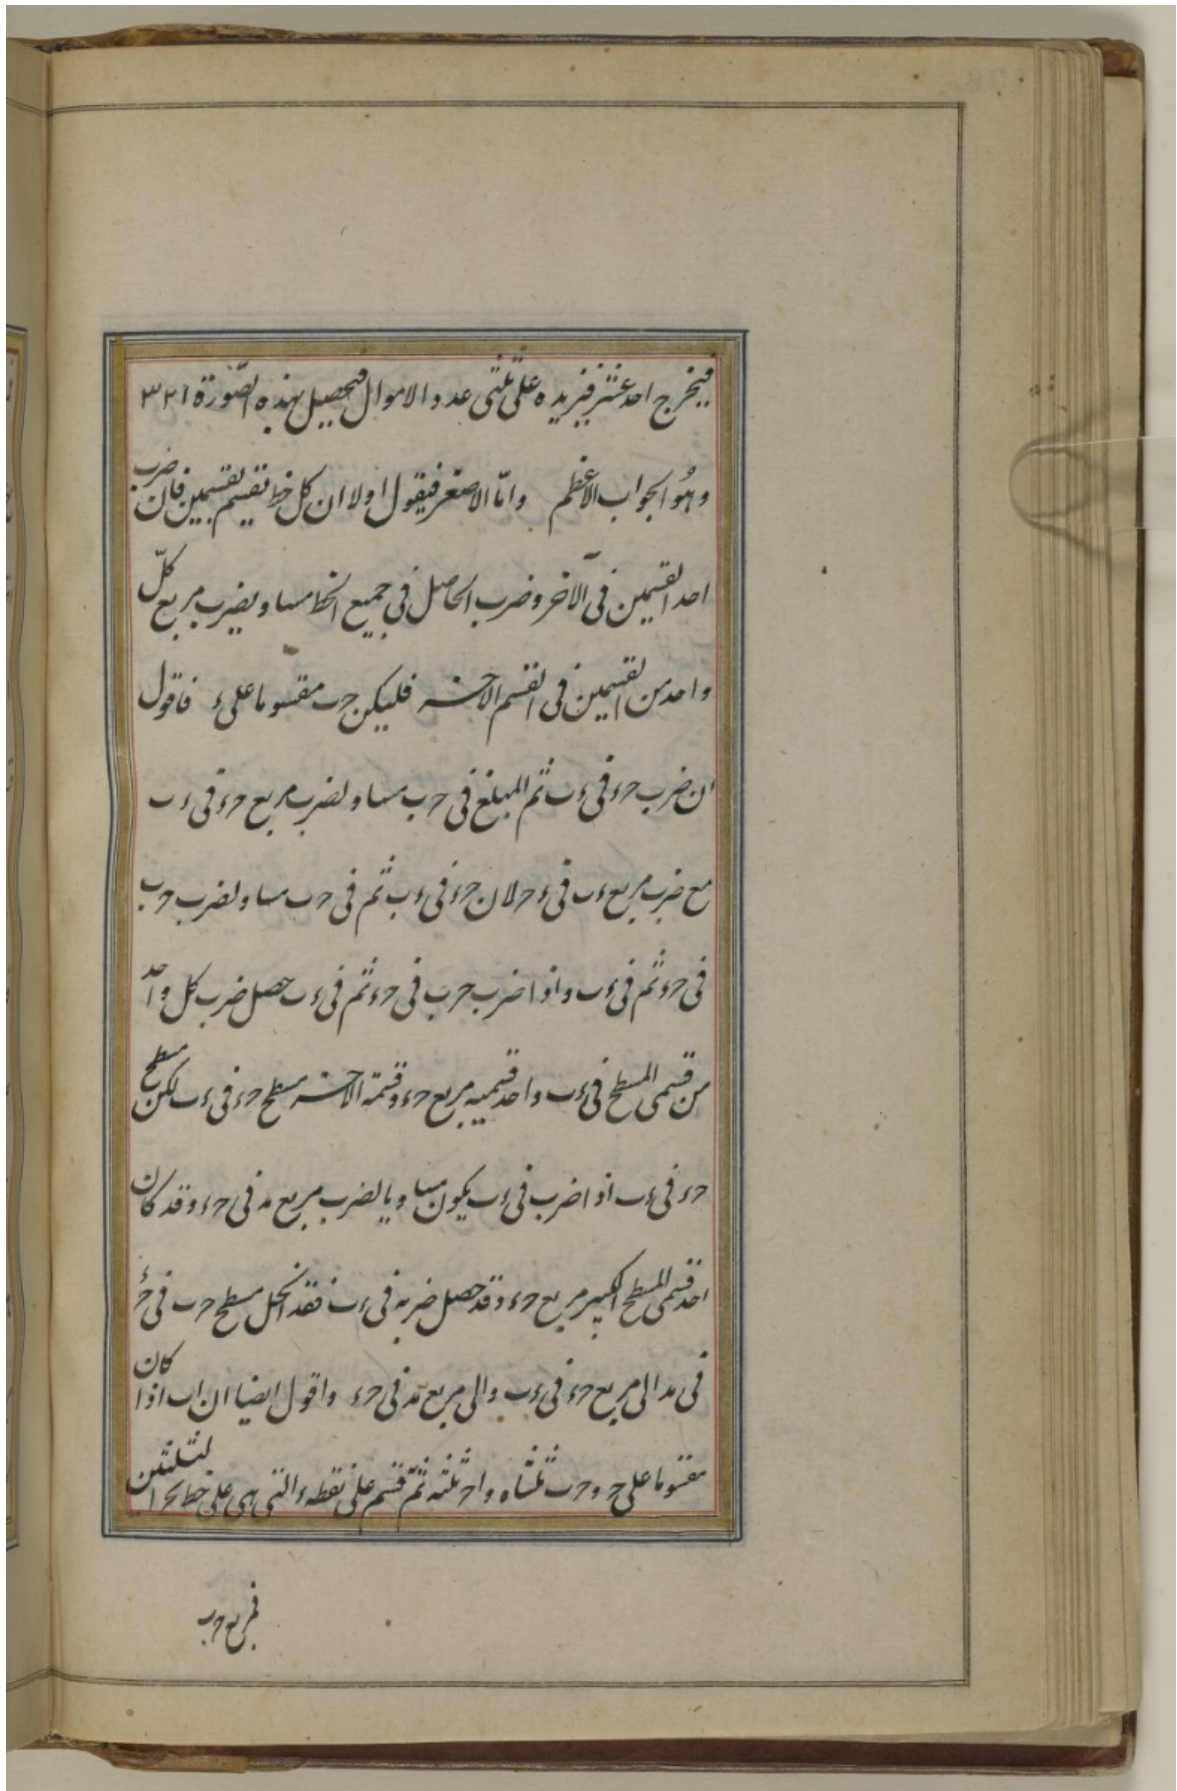 فيخرج احد عشر فيزيده على ثلثى عدد الاموال فيحصل بهذه الصّورة ٣٢١
وهُو الجواب الاعظم وامّا الاصغر فيقول اولا ان كل خط يقسم بقسمين فان ضرب
احد القسمين فى الآخر وضرب الحاصل فى جميع الخط مساو لضرب مربع كلّ
واحد من القسمين فى القسم الاخر فليكن حب مقسوما على ء فاقول
ان ضرب حء فى ءب ثم المبلغ فى حب مساو لضرب مربع حء فى ءب
مع ضرب مربع ءب فى ءح لان حء فى ءب ثم فى حب مساو لضرب حب
فى حء ثم فى ءب واذا ضرب حب فى حء ثم فى ءب حصل ضرب كل واحد
من قسمى المسطح فى ءب واحد قسميه مربع حء وقسمة الاخر مسطح حء فى ءب لكن مسطح
حء فى ءب اذا ضرب فى ءب يكون مساويا لضرب مربع مد فى حء وقد كان
احد قسمى المسطح الكبير مربع حء وقد حصل ضربه فى ءب فقد انحل مسطح حب فى حء
فى مد الى مربع حء فى ءب والى مربع مد فى حء واقول ايضا ان اب اذا كان
مقسوما على ح وحب ثلثاه واح ثلثه ثمّ قسم على نقطة ء التى هى على خط الثلثين
فمربع حب